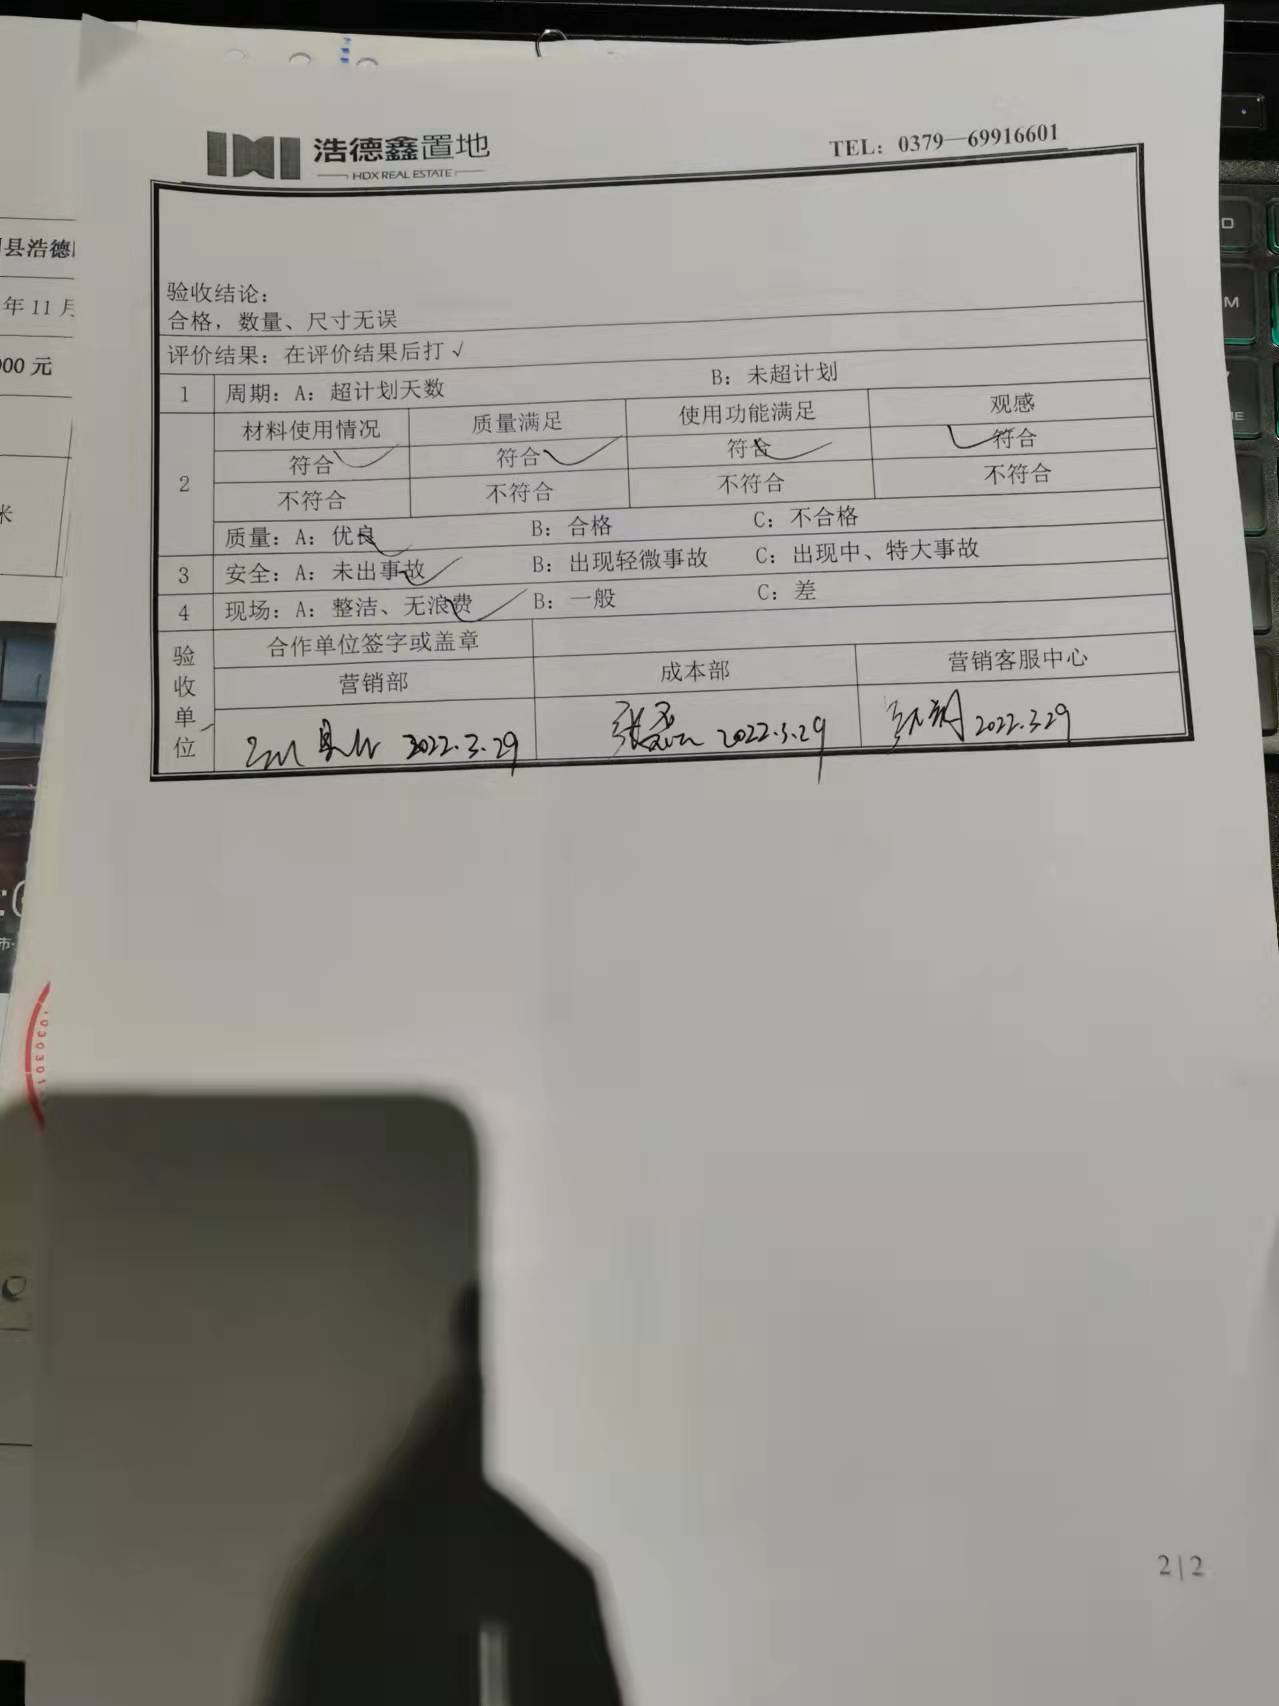 浩德鑫置地
HDX REAL ESTATE
TEL：0379—69916601
县浩德
年 11 月
000 元
米
验收结论：
合格，数量、尺寸无误
评价结果：在评价结果后打√
1 周期：A：超计划天数 B：未超计划
2 材料使用情况 质量满足 使用功能满足 观感
符合 符合 符合 符合
不符合 不符合 不符合 不符合
质量：A：优良 B：合格 C：不合格
3 安全：A：未出事故 B：出现轻微事故 C：出现中、特大事故
4 现场：A：整洁、无浪费 B：一般 C：差
验收单位 合作单位签字或盖章
营销部 成本部 营销客服中心
2022.3.29 张 2022.3.29 2022.3.29
2|2